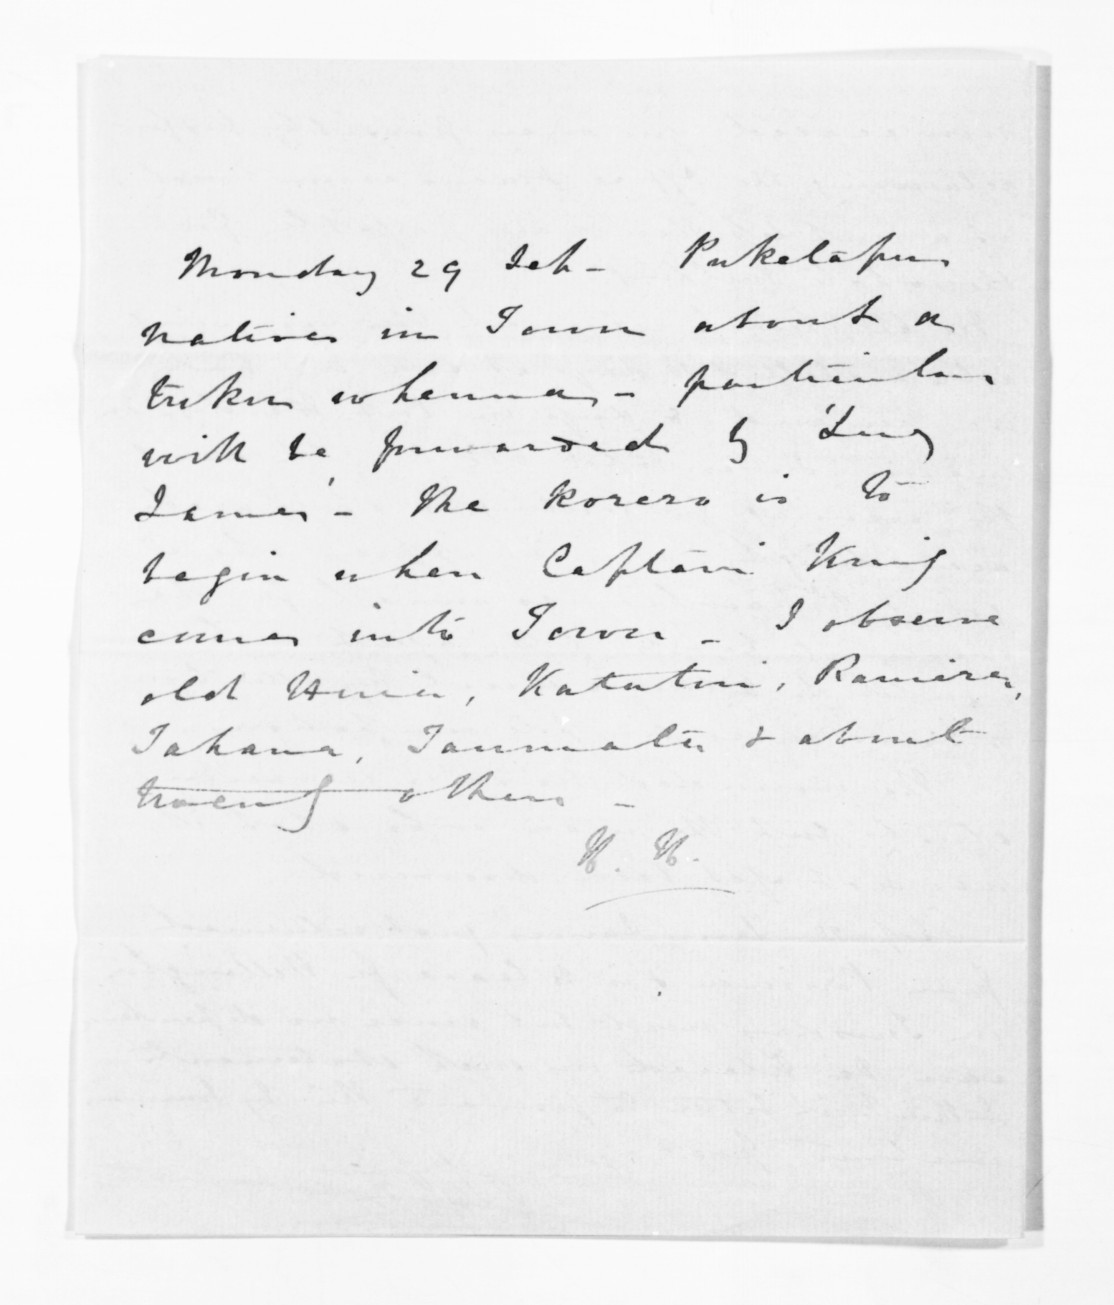 Monday 29 Feb - Puketapu
natives in Town about a
tuku whenua - particulars
will be forwarded by
James' - the korero is to
begin when Captain King
comes into Town - I observe
old Huia, Katatori, Ramera,
Tahana, & about
twenty others -
H. H.